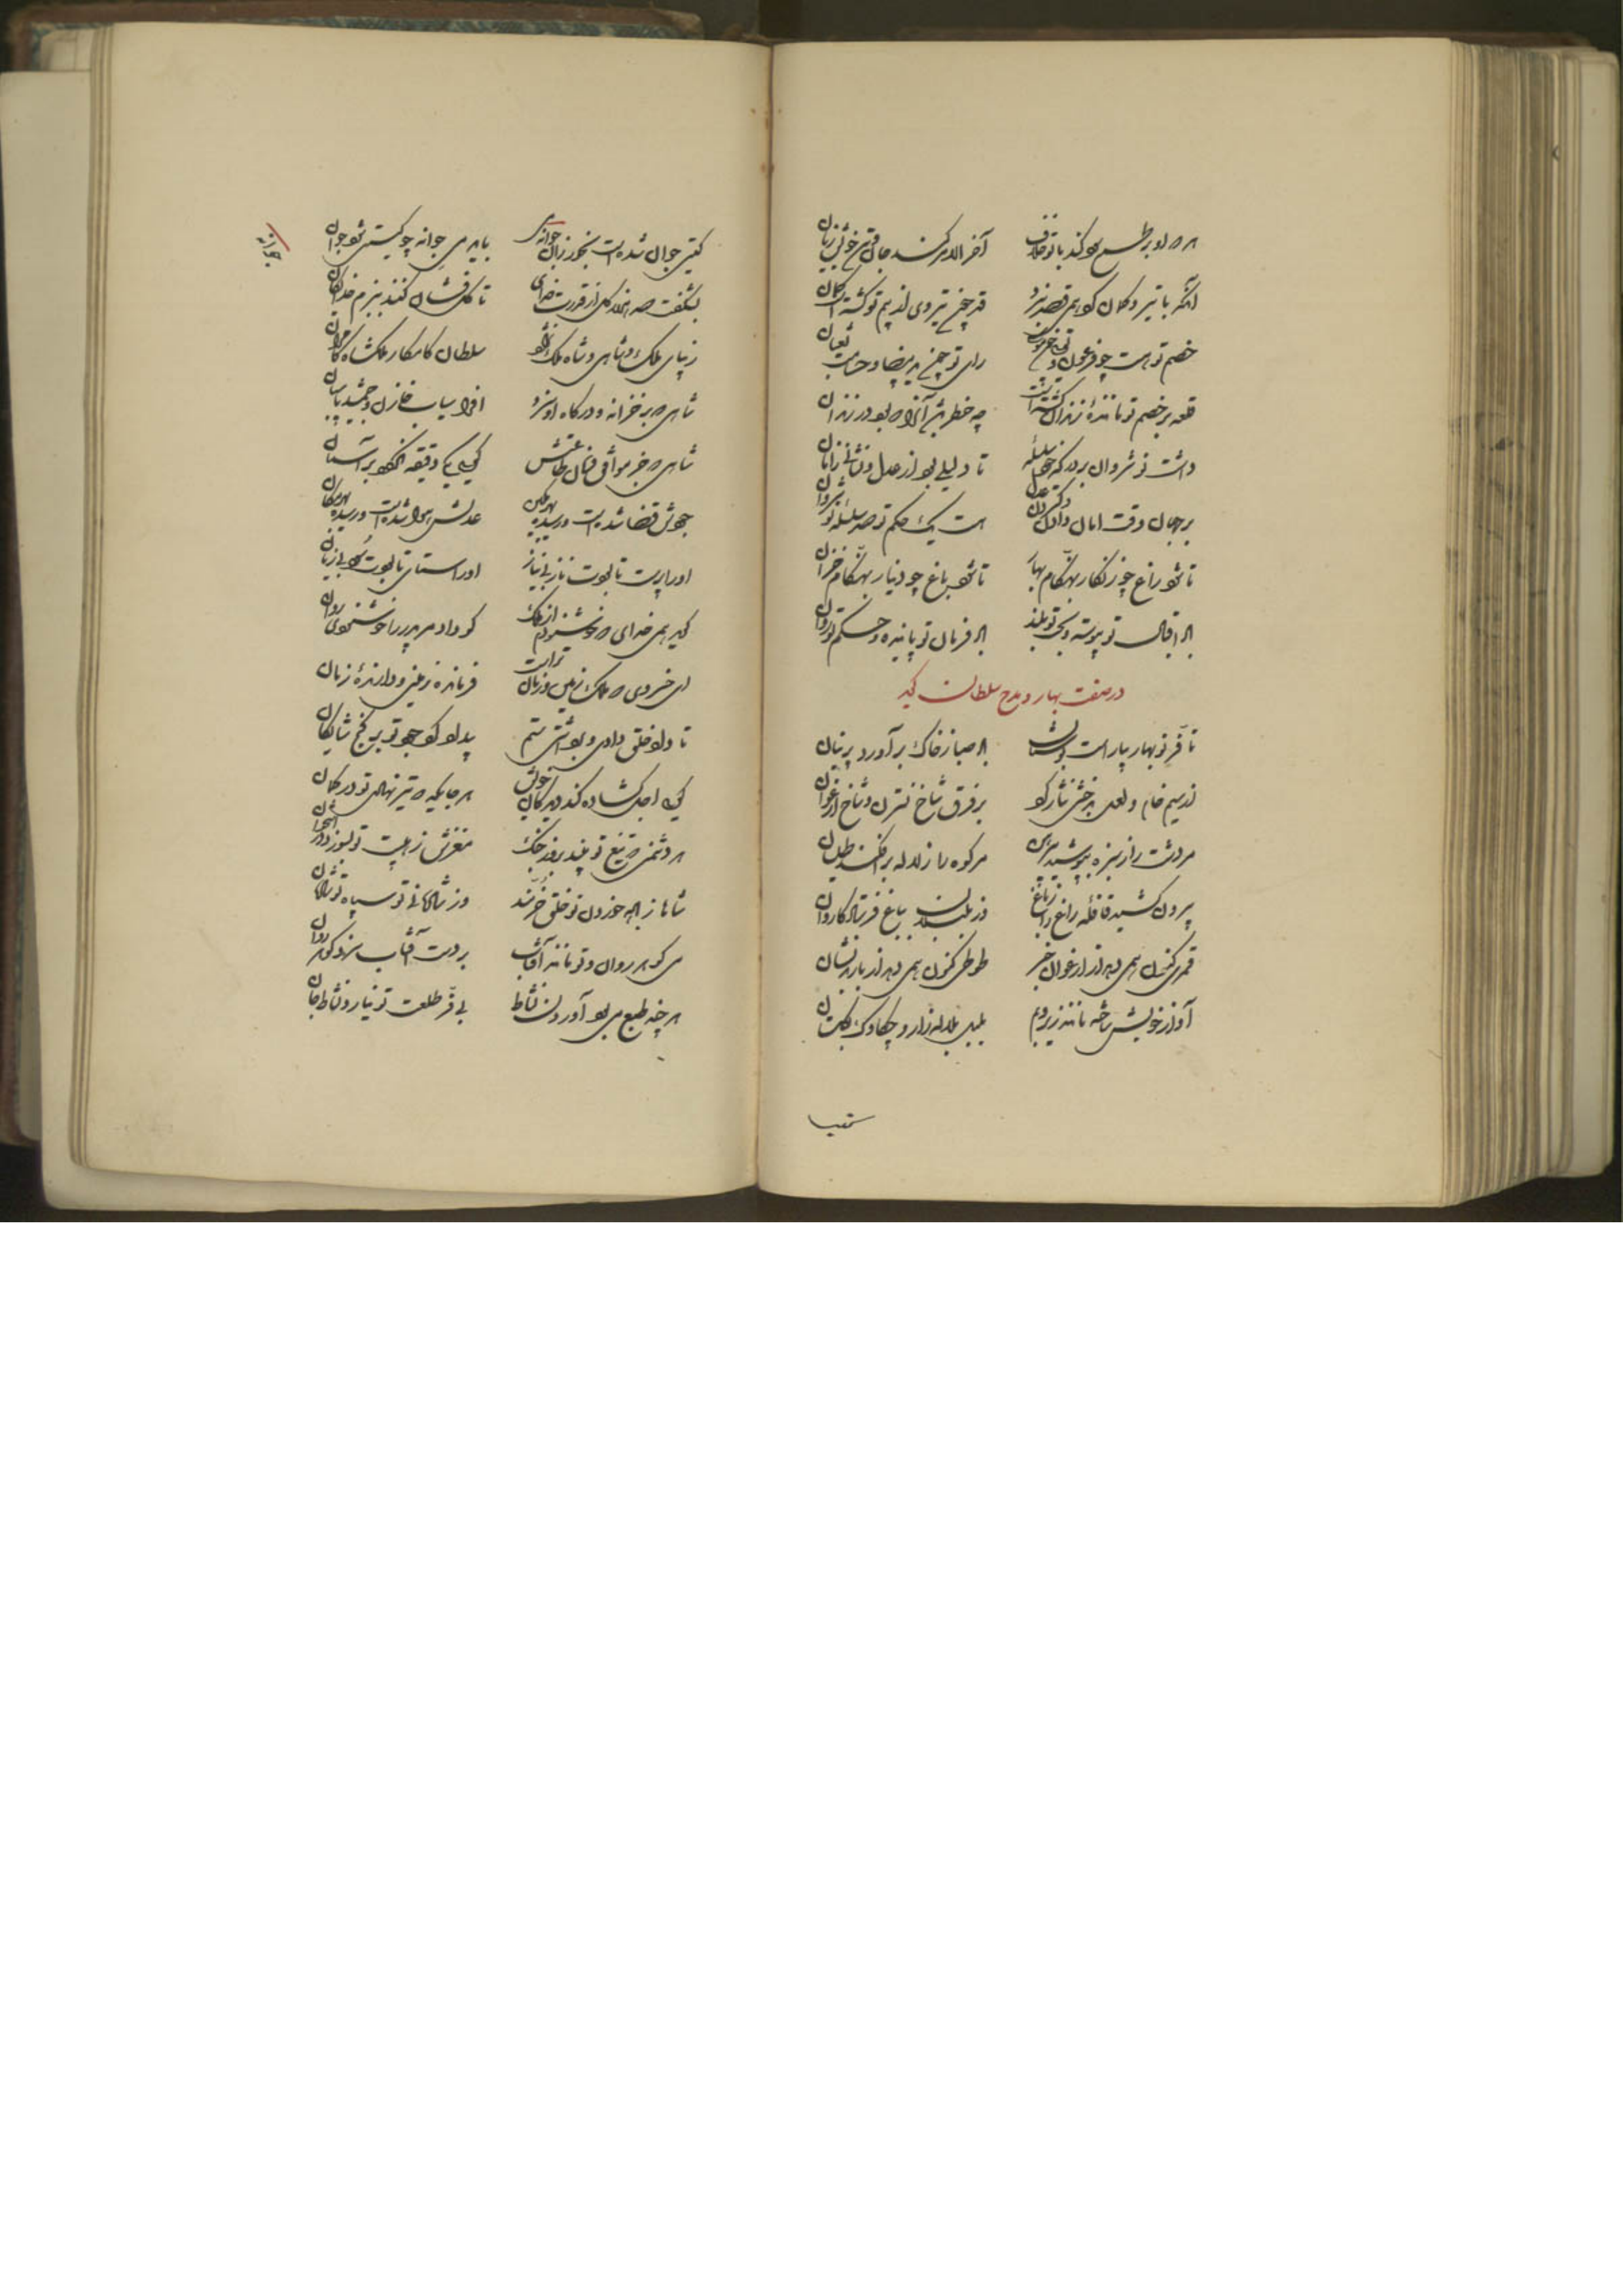 هر که او بر طمع سود کند با تو خلاف آخر الامر کند جان و تن خویش زیان
آنکه با تیر و کمان کرد همی قصد نبرد قد چون تیر وی از بیم تو گشته است کمان
خصم تو هست چو فرعون و رای تو چون ید بیضا و حسامت ثعبان
قلعه بر خصم تو ماننده زندان گشته است چه خطر باشد آنرا که بود در زندان
داشت نوشروان بر درگه خود سلسله تا دلیلی بود از عدل و نشانی ز امان
بر جهان وقت امان دادن و عدل هست یک حکم تو صد سلسله نوشروان
تا شود راغ چو زنگار بهنگام بهار تا شود باغ چو دینار بهنگام خزان
باد اقبال تو پیوسته و بخت تو بلند باد فرمان تو پاینده و حکم تو روان
در صفت بهار و مدح سلطان گوید
تا فر نوبهار بیاراست بوستان باد صبا ز خاک برآورد پرنیان
از سیم خام و لعل بدخشی نثار کرد بر فرق شاخ نسترن و شاخ ارغوان
مر دشت را ز سبزه بپوشید پیرهن مر کوه را ز لاله برافکند طیلسان
بیرون کشید قافله زاغ را ز باغ وز بلبلان بباغ فرستاد کاروان
قمری کنون همی دهد از ارغوان خبر طوطی کنون همی دهد از نشان
آواز خویش ساخته مانند زیر و بم بلبل بلاله زار و چکاوک بگلستان
گیتی جوان شده است بخور زان جوانه می باید می جوانه چو گیتی شود جوان
جوانه
بشگفت صد هزار گل از قدرت خدای تا گل فشان کنند ببزم خدایگان
زیبای ملک و شاهی و شاه ملک نژاد سلطان کامکار ملکشاه کامران
شاهی که بر خزانه و درگاه او سزد افراسیاب خازن و جمشید پاسبان
شاهی که جز موافق فرمان و طاعتش گوئی یکی دقیقه نگردد بر آسمان
جودش قضا شده است و رسیده بهر مکین عدلش هوا شده است و رسیده بهر مکان
او را پرست تا بودت ناز بی نیاز او را ستای تا بودت سود بی زیان
گوید همی خدای که خشنودم از ملک کو داد مر پدر را خوشنودی روان
ای خسروی که ملک زمین و زمان تراست فرمانده زمینی و دارنده زمان
تا داد خلق دادی و برداشتی ستم پیدا نکرد جود تو بر گنج شایگان
گوئی اجل گشاده کند دیدگان خویش هر جایگه که تیر نهادی تو در کمان
هر دشمنی که تیغ تو بیند بروز جنگ مغزش ز هیبت تو بسوزد در استخوان
شاها ز باده خوردن تو خلق خرمند وز شادمانی تو سپاه تو شادمان
می گوهر روان و تو مانند آفتاب بر دست آفتاب سزد گوهر روان
هر چند طبع می بود آوردن نشاط بی فر طلعت تو نیارد نشاط جان